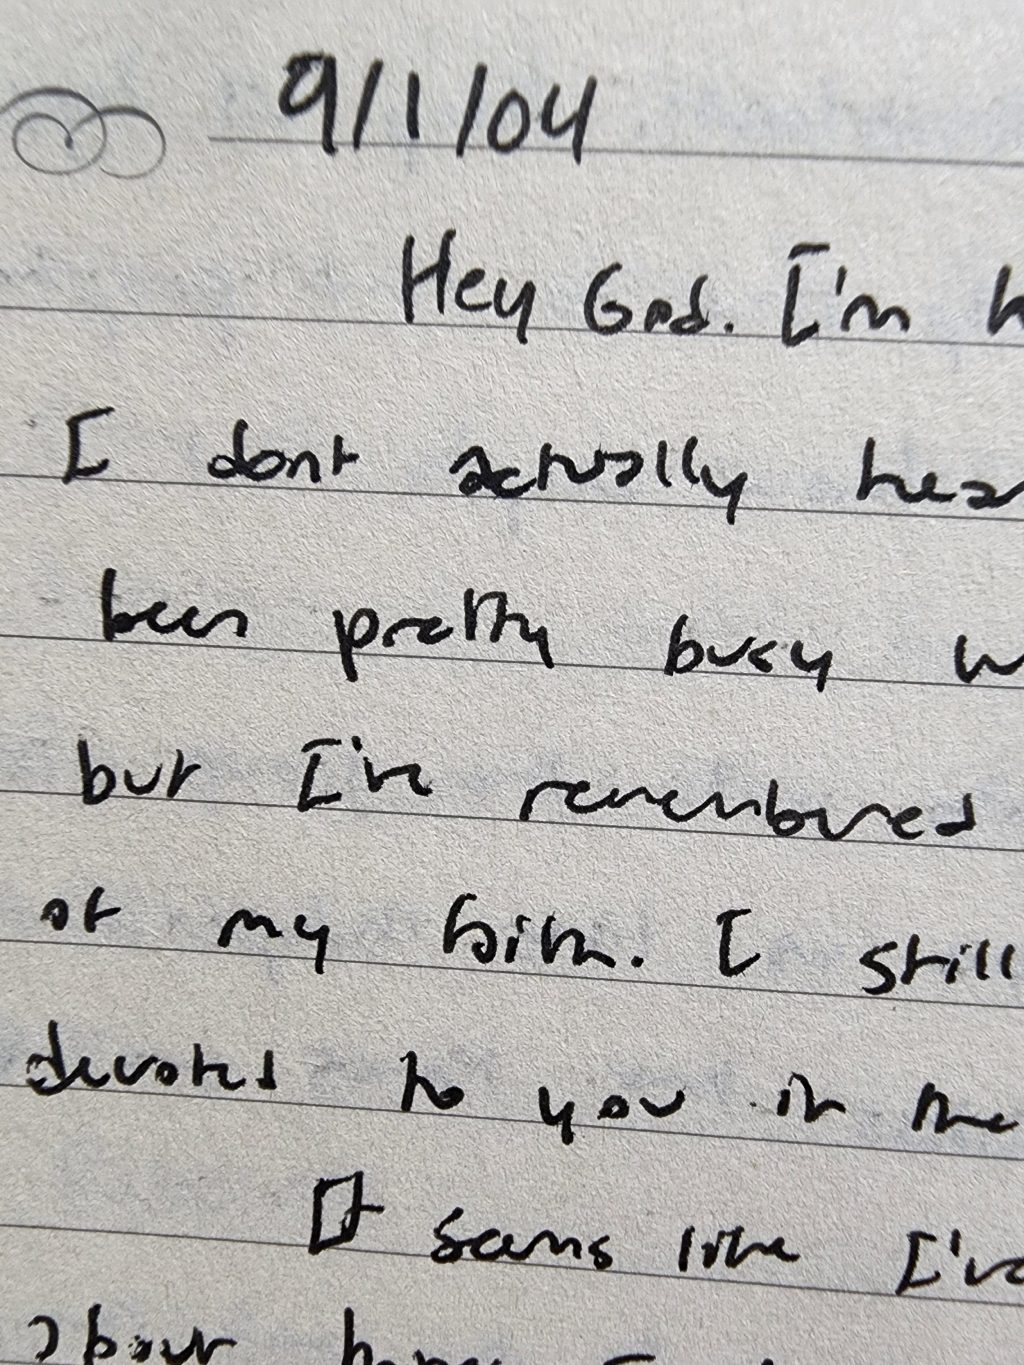 9/1/04
Hey God. I'm h
I dont actually hear
been pretty busy w
but I've remembered
of my faith. I still
devoted to you in the
It seems like I've
about